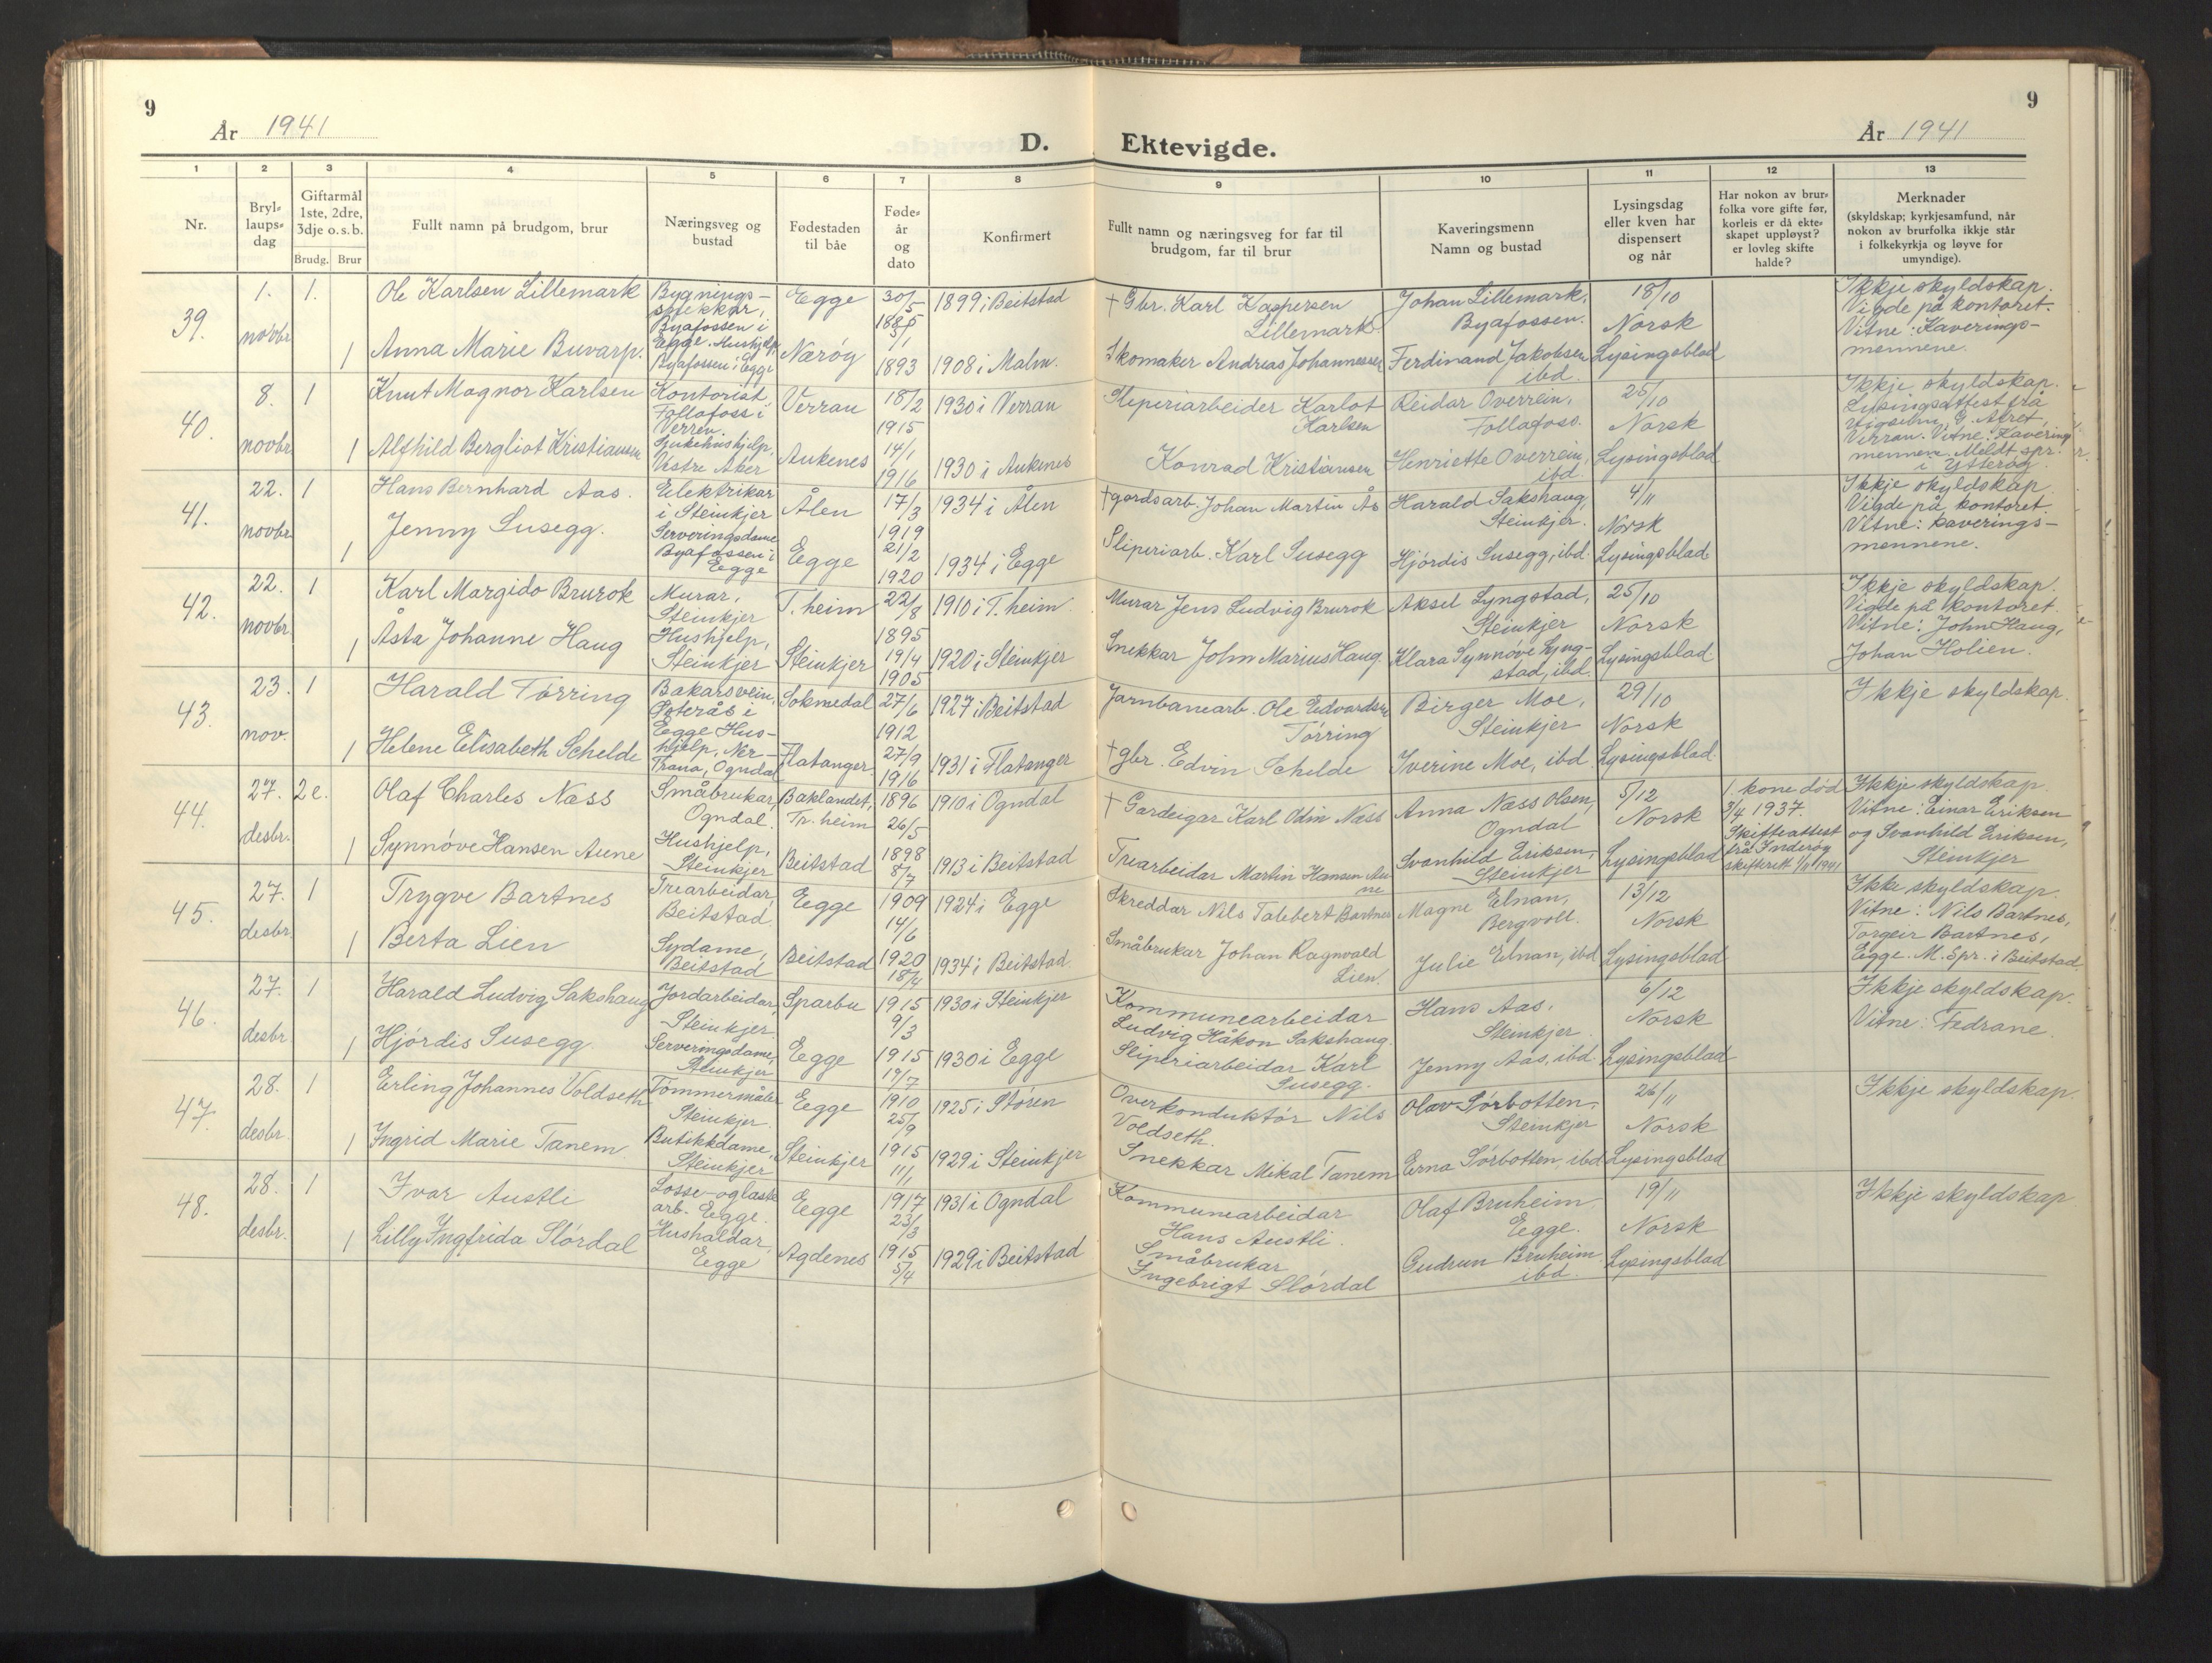 9
År 1941
D.
Ektevigde.
År 1941
9
1 2 3 4 5 6 7 8 9 10 11 12 13
Nr.
Bryl-
laups-
dag
Giftarmål
1ste, 2dre,
3dje o.s.b.
Brudg. Brur
Fullt namn på brudgom, brur
Næringsveg og
bustad
Fødestaden
til båe
Føde-
år
og
dato
Konfirmert
Fullt namn og næringsveg for far til
brudgom, far til brur
Kaveringsmenn
Namn og bustad
Lysingsdag
eller kven har
dispensert
og når
Har nokon av brur-
folka vore gifte før,
korleis er då ekte-
skapet uppløyst?
er lovleg skifte
halde?
Merknader
(skyldskap; kyrkjesamfund, når
nokon av brurfolka ikkje står
i folkekyrkja og løyve for
umyndige).
39.
1.
novbr
1.
1
Ole Karlsen Lillemark
Anna Marie Buvarp.
Bygnings-
snekkar,
Byafossen i
Egge. Hushjelp
Byafossen i Egge
Egge
Nærøy
30/5
1/1
1893
1899 i Beitstad
1908 i Malm.
† Gbr. Karl Kaspersen
Lillemark
Skomaker Andreas Johannessen
Johan Lillemark,
Byafossen.
Ferdinand Jakobsen
ibd.
18/10
Norsk
Lysingsblad
Ikkje skyldskap.
Vigde på kontoret.
Vitne: Kaverings-
mennene.
40.
8.
novbr
1
1
Knut Magnor Karlsen
Alfhild Bergliot Kristiansen
Kontorist,
Follafoss i
Verran.
Sjukehushjelp,
Vestre Aker
Verran
Ankenes
18/2
1915
14/1
1916
1930 i Verran
1930 i Ankenes
Sleperiarbeider Karlot
Karlsen
Konrad Kristiansen
Reidar Overrein,
Follafoss.
Henriette Overrein,
ibd.
25/10
Norsk
Lysingsblad
Ikkje skyldskap.
Lysingsattest frå
Verran. Vitne: Kavering
mennen. Meldt spr.
i Ytterøy.
41.
22.
novbr
1
1
Hans Bernhard Aas.
Jenny Susegg.
Elektrikar
i Steinkjer
Serveringsdame
Byafossen i
Egge
Ålen
Egge
17/3
1919
21/2
1920
1934 i Ålen
1934 i Egge
† gardsarb. Johan Martin Ås
Sliperiarb. Karl Susegg
Harald Sakshaug,
Steinkjer.
Hjørdis Susegg, ibd.
4/11
Norsk
Lysingsblad
Ikkje skyldskap
Vigde på kontoret.
Vitne: kaverings-
mennene.
42.
22.
novbr.
1
1
Karl Margido Brurok
Åsta Johanne Haug
Murar,
Steinkjer
Hushjelp,
Steinkjer
T. heim
Steinkjer
22/8
1895
19/4
1905
1910 i T. heim
1920 i Steinkjer
Murar Jens Ludvig Brurok
Snekkar John Marius Haug.
Aksel Lyngstad,
Steinkjer
Klara Synnøve Lyng-
stad, ibd.
25/10
Norsk
Lysingsblad
Ikkje skyldskap.
Vigde på kontoret.
Vitne: John Haug,
Johan Holien.
43.
23.
nov.
1
1
Harald Tørring
Helene Elisabeth Schelde
Bakarsvein,
Østerås i
Egge Hus-
hjelp, Ner-
Trana, Ogndal
Sokmedal
Flatanger
27/6
1912
27/9
1916
1927 i Beitstad
1931 i Flatanger
Jarnbanearb. Ole Edvardsen
Tørring
† gbr. Edvin Schelde
Birger Moe,
Steinkjer
Iverine Moe, ibd
29/10
Norsk
Lysingsblad.
Ikkje skyldskap.
44.
27.
desbr.
2e.
1
Olaf Charles Næss
Synnøve Hansen Aune
Småbrukar,
Ogndal.
Hushjelp,
Steinkjer
Baklandet,
Tr. heim
Beitstad
1896
26/5
1898
8/7
1910 i Ogndal
1913 i Beitstad
† Gardeigar Karl Odin Næss
Trearbeidar Martin Hansen Au-
ne
Anna Næss Olsen,
Ogndal
Svanhild Eriksen,
Steinkjer
5/12
Norsk
Lysingsblad
1. kone død
3/4 1937.
Skifteattest
frå Inderøy
skifterett 1/11 1941
Ikkje skyldskap.
Vitne: Einar Eriksen
og Svanhild Eriksen,
Steinkjer
45.
27.
desbr.
1
1
Trygve Bartnes
Berta Lien
Trearbeidar,
Beitstad.
Sydame,
Beitstad
Egge
Beitstad
1909
14/6
1920
18/4
1924 i Egge
1934 i Beitstad.
Skreddar Nils Talbert Bartnes
Småbrukar Johan Ragnvald
Lien.
Magne Elnan,
Bergvoll.
Julie Elnan, ibd
13/12
Norsk
Lysingsblad
Ikke skyldskap.
Vitne: Nils Bartnes,
Torgeir Bartnes,
Egge. M. Spr. i Beitstad.
46.
27.
desbr
1
1
Harald Ludvig Sakshaug
Hjørdis Susegg.
Jordarbeidar,
Steinkjer.
Serveringsdame,
Steinkjer
Sparbu
Egge
1915
9/3
1915
19/7
1930 i Steinkjer
1930 i Egge
Kommunearbeidar
Ludvig Håkon Sakshaug.
Sliperiarbeidar Karl
Susegg.
Hans Aas,
Steinkjer.
Jenny Aas, ibd.
6/12
Norsk
Lysingsblad
Ikkje skyldskap.
Vitne: Fedrane.
47.
28.
desbr.
1
1
Erling Johannes Voldseth
Ingrid Marie Tanem
Tømmermåler
Steinkjer.
Butikkdame,
Steinkjer
Egge
Steinkjer
1910
25/9
1915
11/1
1925 i Støren
1929 i Steinkjer
Overkonduktør Nils
Voldseth.
Snekkar Mikal Tanem
Olav Sørbotten,
Steinkjer
Erna Sørbotten, ibd
26/11
Norsk
Lysingsblad
Ikkje skyldskap.
48.
28.
desbr.
1
1
Ivar Austli
Lilly Ingfrida Slørdal
Losse- og laste
arb. Egge.
Hushaldar,
Egge
Egge
Agdenes
1917
23/3
1915
5/4
1931 i Ogndal
1929 i Beitstad
Kommunearbeidar
Hans Austli.
Småbrukar
Ingebrigt Slørdal
Olaf Bruheim
Egge.
Gudrun Bruheim
ibd.
19/11
Norsk
Lysingsblad
Ikkje skyldskap